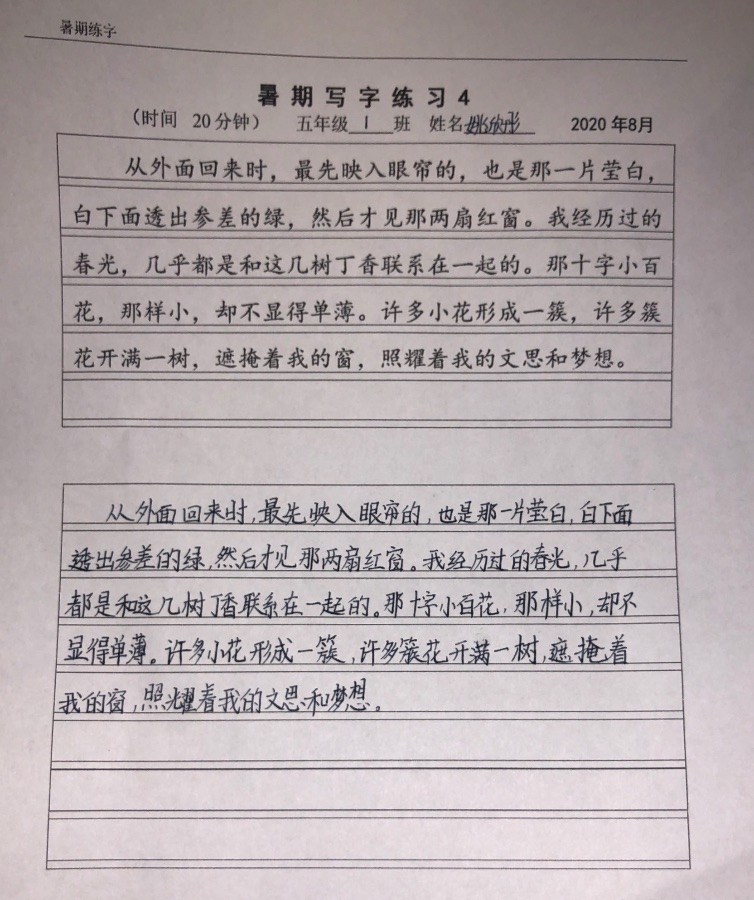 暑期练字
暑期写字练习4
（时间 20分钟） 五年级 1 班 姓名姚欣彤 2020年8月
从外面回来时，最先映入眼帘的，也是那一片莹白，
白下面透出参差的绿，然后才见那两扇红窗。我经历过的
春光，几乎都是和这几树丁香联系在一起的。那十字小百
花，那样小，却不显得单薄。许多小花形成一簇，许多簇
花开满一树，遮掩着我的窗，照耀着我的文思和梦想。
从外面回来时,最先映入眼帘的,也是那一片莹白,白下面
透出参差的绿,然后才见那两扇红窗。我经历过的春光,几乎
都是和这几树丁香联系在一起的。那十字小百花,那样小,却不
显得单薄。许多小花形成一簇,许多簇花开满一树,遮掩着
我的窗,照耀着我的文思和梦想。